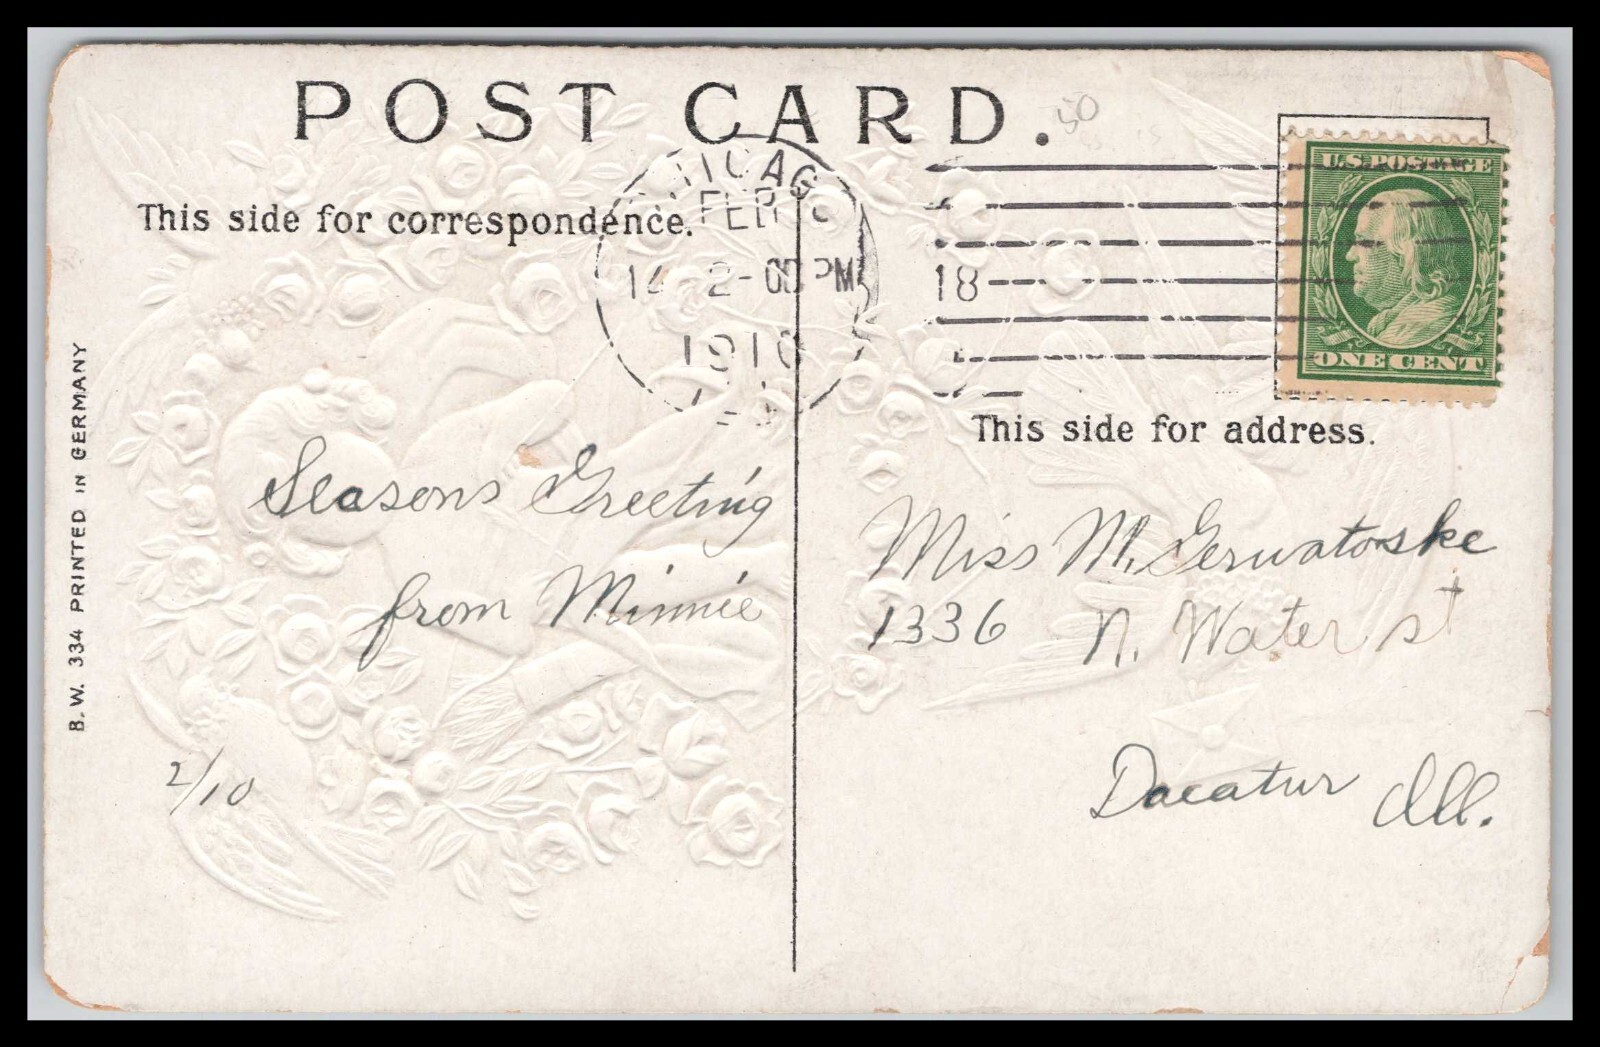 POST CARD.
50
This side for correspondence.
CHICAGO
FEB
14 2-00 PM
1910
18
U.S. POSTAGE
ONE CENT
This side for address.
B. W. 334 PRINTED IN GERMANY
Seasons Greeting
from Minnie
2/10
Miss M. Gerwatoske
1336 N. Water st
Decatur Ill.